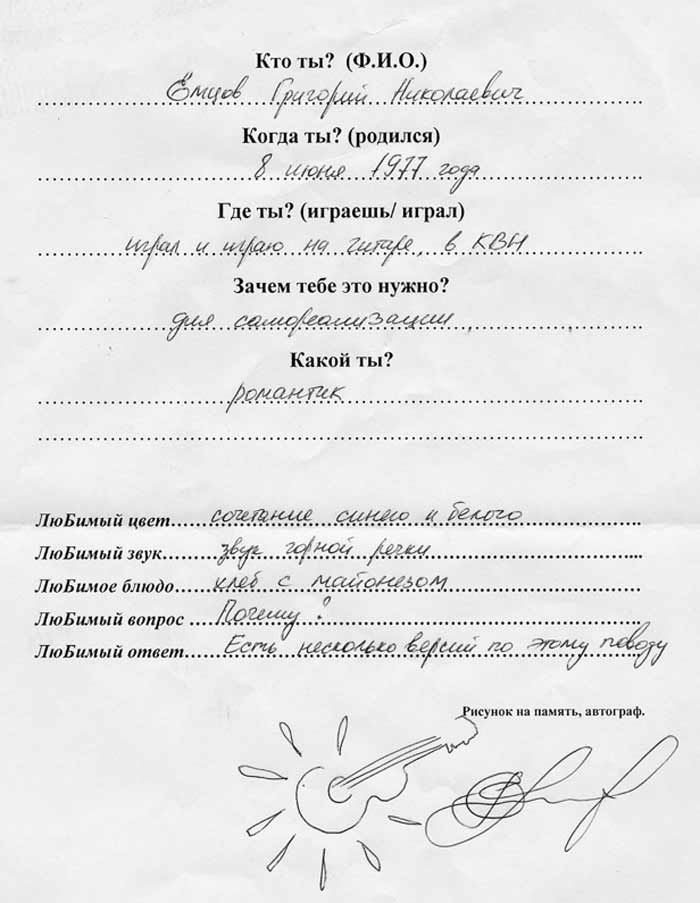 Кто ты? (Ф.И.О.)
Ёмцов Григорий Николаевич
Когда ты? (родился)
8 июня 1977 года
Где ты? (играешь/ играл)
играл и играю на гитаре, в КВН
Зачем тебе это нужно?
для самореализации
Какой ты?
романтик
ЛюБимый цвет......сочетание синего и белого
ЛюБимый звук......звук горной речки
ЛюБимое блюдо......хлеб с майонезом
ЛюБимый вопрос ......Почему?
ЛюБимый ответ......Есть несколько версий по этому поводу
Рисунок на память, автограф.